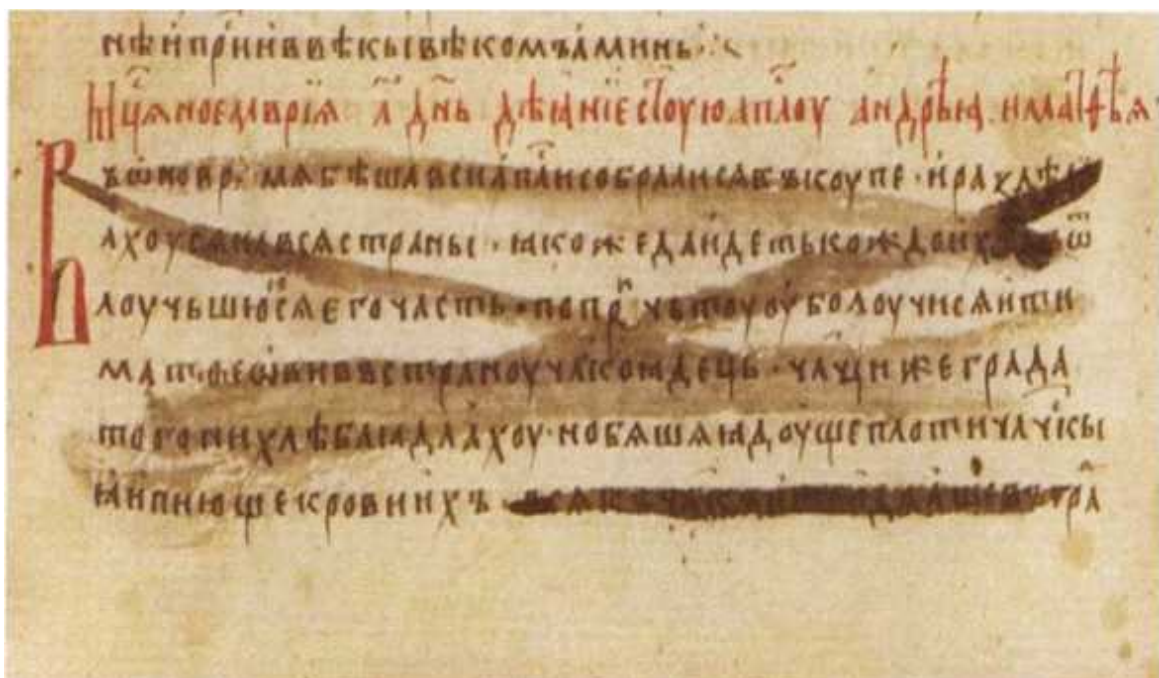 нѣ и прⷭ҇н и в вѣкы вѣкомъ аминь
мцⷭ҇ѧ ноеꙗврїѧ л҃ дн҃ь дѣꙗнїе ст҃ою ап҃лоу андрѣꙗ и матѳѣѧ
Въ ѡно врⷨ҇ѧ бѣша вси ап҃ли собрали сѧ въкоупе · и раздѣлѧ
ахоу сѧ на всѧ страны · ꙗкоже да идеть кождо их
лоучьшюю сѧ его часть · по прⷤ҇ чьтоу оубо лоучи сѧ ити
матѳеѡви в страноу чл҃коꙗдець · чл҃ци же града
того ни хлѣба ꙗдѧхоу но бѧшѧ ꙗдоуще плоти чл҃чкыꙗ
и пиюще кровь ихъ